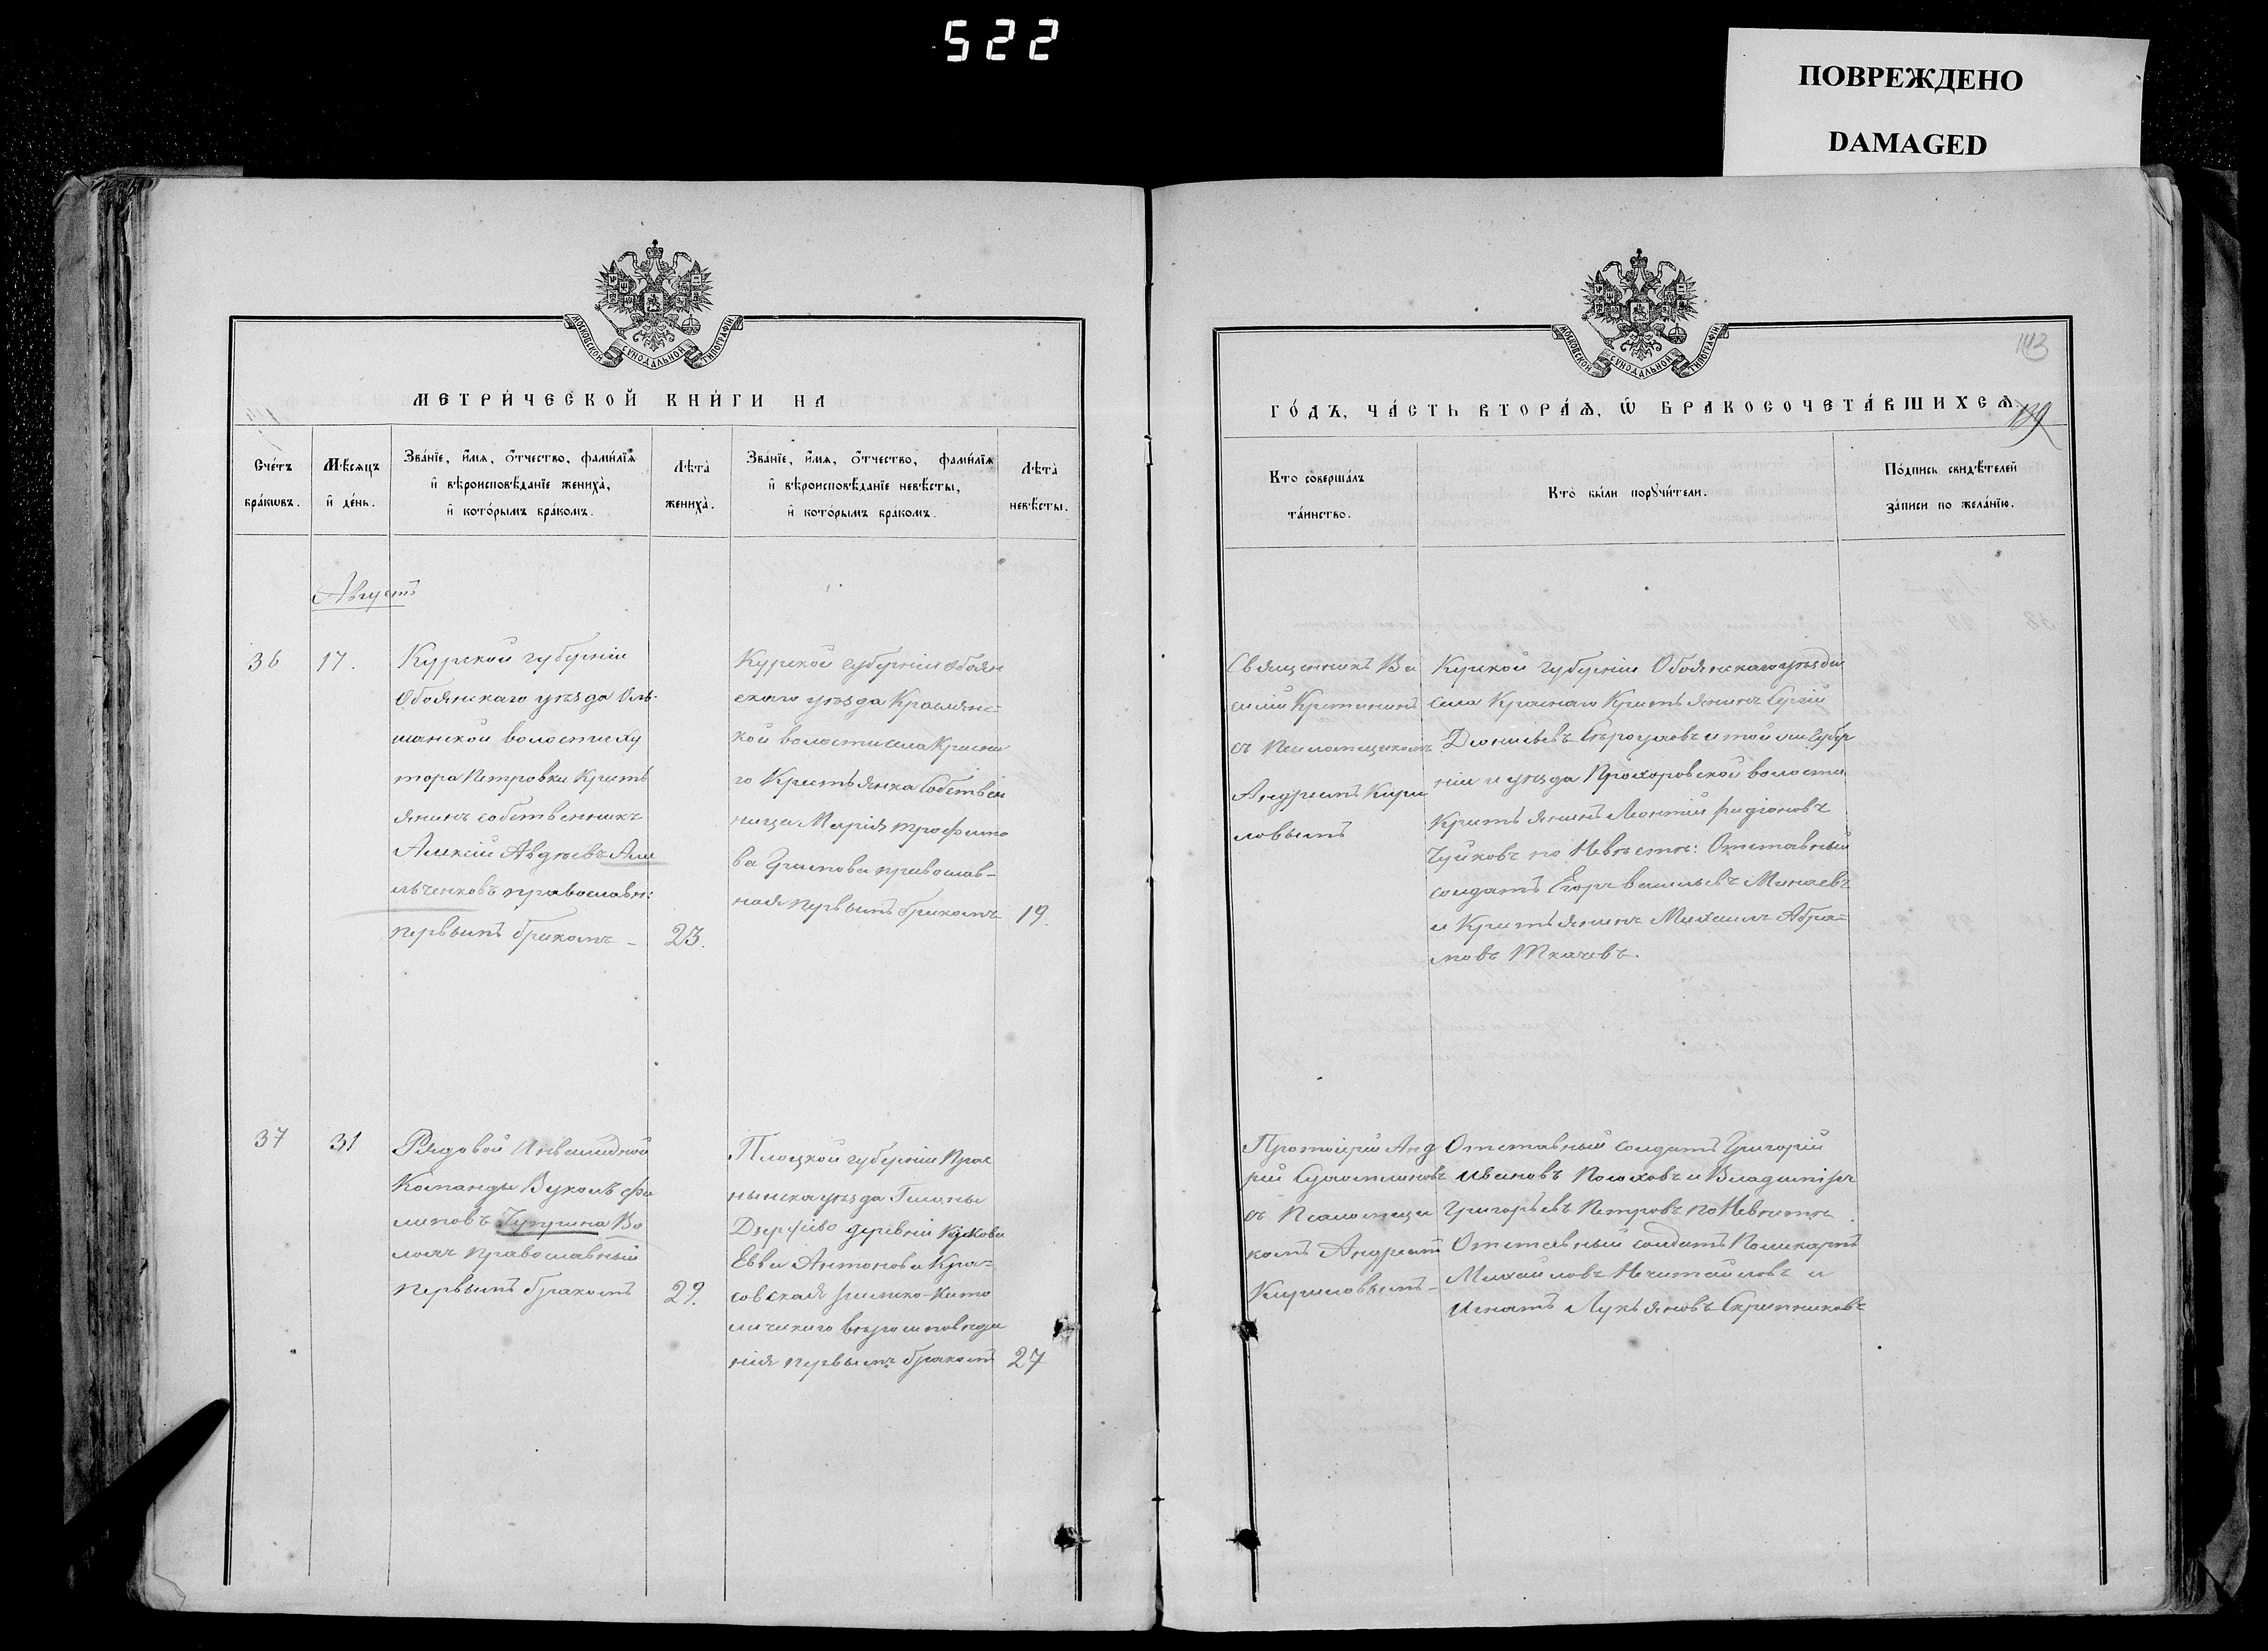 522
ПОВРЕЖДЕНО
DAMAGED
МОСКОВСКОЙ СѴНОДАЛЬНОЙ ТИПОГРАФІИ
МЕТРИ́ЧЕСКОЙ КНИ́ГИ НА
Сче́тъ бра́кωвъ.
Мѣ́сяцъ и҆ де́нь.
Зва́нїе, и҆́мя, ѻ҆́тчество, фами́лїѧ
и҆ вѣроисповѣ́данїе жениха̀,
и҆ кото́рымъ бра́комъ.
Лѣта̀ жениха̀.
Зва́нїе, и҆́мя, ѻ҆́тчество, фами́лїѧ
и҆ вѣроисповѣ́данїе невѣ́сты,
и҆ кото́рымъ бра́комъ.
Лѣта̀ невѣ́сты.
Августъ
36
17.
Курской губерніи
Обоянскаго уѣзда Оль-
шанской волости ху
тора Петровки Кресть
янинъ собственникъ
Алексій Авдѣевъ Аме
льченковъ православн:
первымъ бракомъ -
23.
Курской губерніи Обоян
скаго уѣзда Краснянс-
кой волости села Красна
го Крестьянка собствен
ница Марія Трофимо
ва православ-
ная первымъ бракомъ
19.
37
31
Рядовой Инвалидной
Команды Вуколъ Фи
липовъ Во
лохъ православный
первымъ бракомъ
29.
Плоцкой губерніи Прас
нышска уѣзда Гмины
Дзергово деревни
Евва Антонова Кра-
совская римско-като
лическаго вѣроисповѣда
нія первымъ бракомъ
27
МОСКОВСКОЙ СѴНОДАЛЬНОЙ ТИПОГРАФІИ
143
ГО́ДЪ, ЧА́СТЬ ВТОРА́Ѧ, Ѡ҆ БРАКОСОЧЕТА́ВШИХСѦ.
139
Кто̀ соверша́лъ
та́инство.
Кто̀ бы́ли порꙋчи́тели.
По́дпись свидѣ́телей
за́писи по жела́нїю.
Священникъ Ва
силій Кретининъ
съ Псаломщикомъ
Андреемъ Кири
ловымъ
Курской губерніи Обоянскаго уѣзда
села Краснаго Крестьянинъ Сергій
Діонисьевъ Сероуховъ и той же губер
ніи и уѣзда Прохоровской волости
Крестьянинъ Леонтій Фадіоновъ
Чуйковъ по Невѣстѣ: Отставный
солдатъ Егоръ Васильевъ Минаевъ
и Крестьянинъ Михаилъ Абра-
мовъ Ткачевъ.
Протоіерей Анд
рей
съ Псаломщи
комъ Андреемъ
Кириловымъ -
Отставный солдатъ Григорій
Ивановъ Полоховъ и Владиміръ
Григорьевъ Петровъ по Невѣстѣ
Отставный солдатъ Поликарпъ
Михайловъ Нечитайловъ и
Игнатъ Лукьяновъ Скрипниковъ